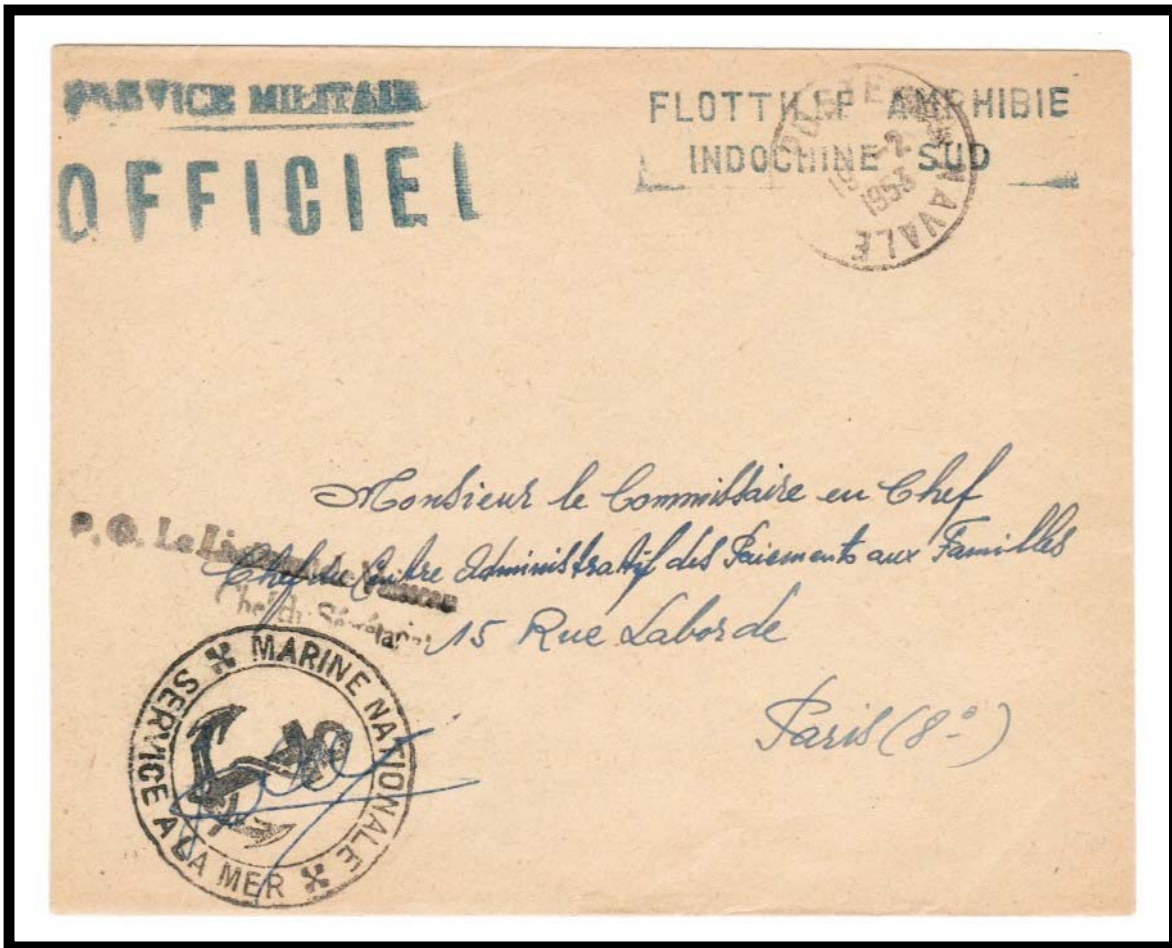 SERVICE MILITAIRE
OFFICIEL
FLOTTILLE AMPHIBIE
INDOCHINE SUD
POSTE NAVALE
19 -2
1953
Monsieur le Commissaire en Chef
Chef du Centre Administratif des Paiements aux Familles
15 Rue Laborde
Paris (8e)
P. O. Le Lieutenant de Vaisseau
Chef du Secrétariat
MARINE NATIONALE
SERVICE A LA MER